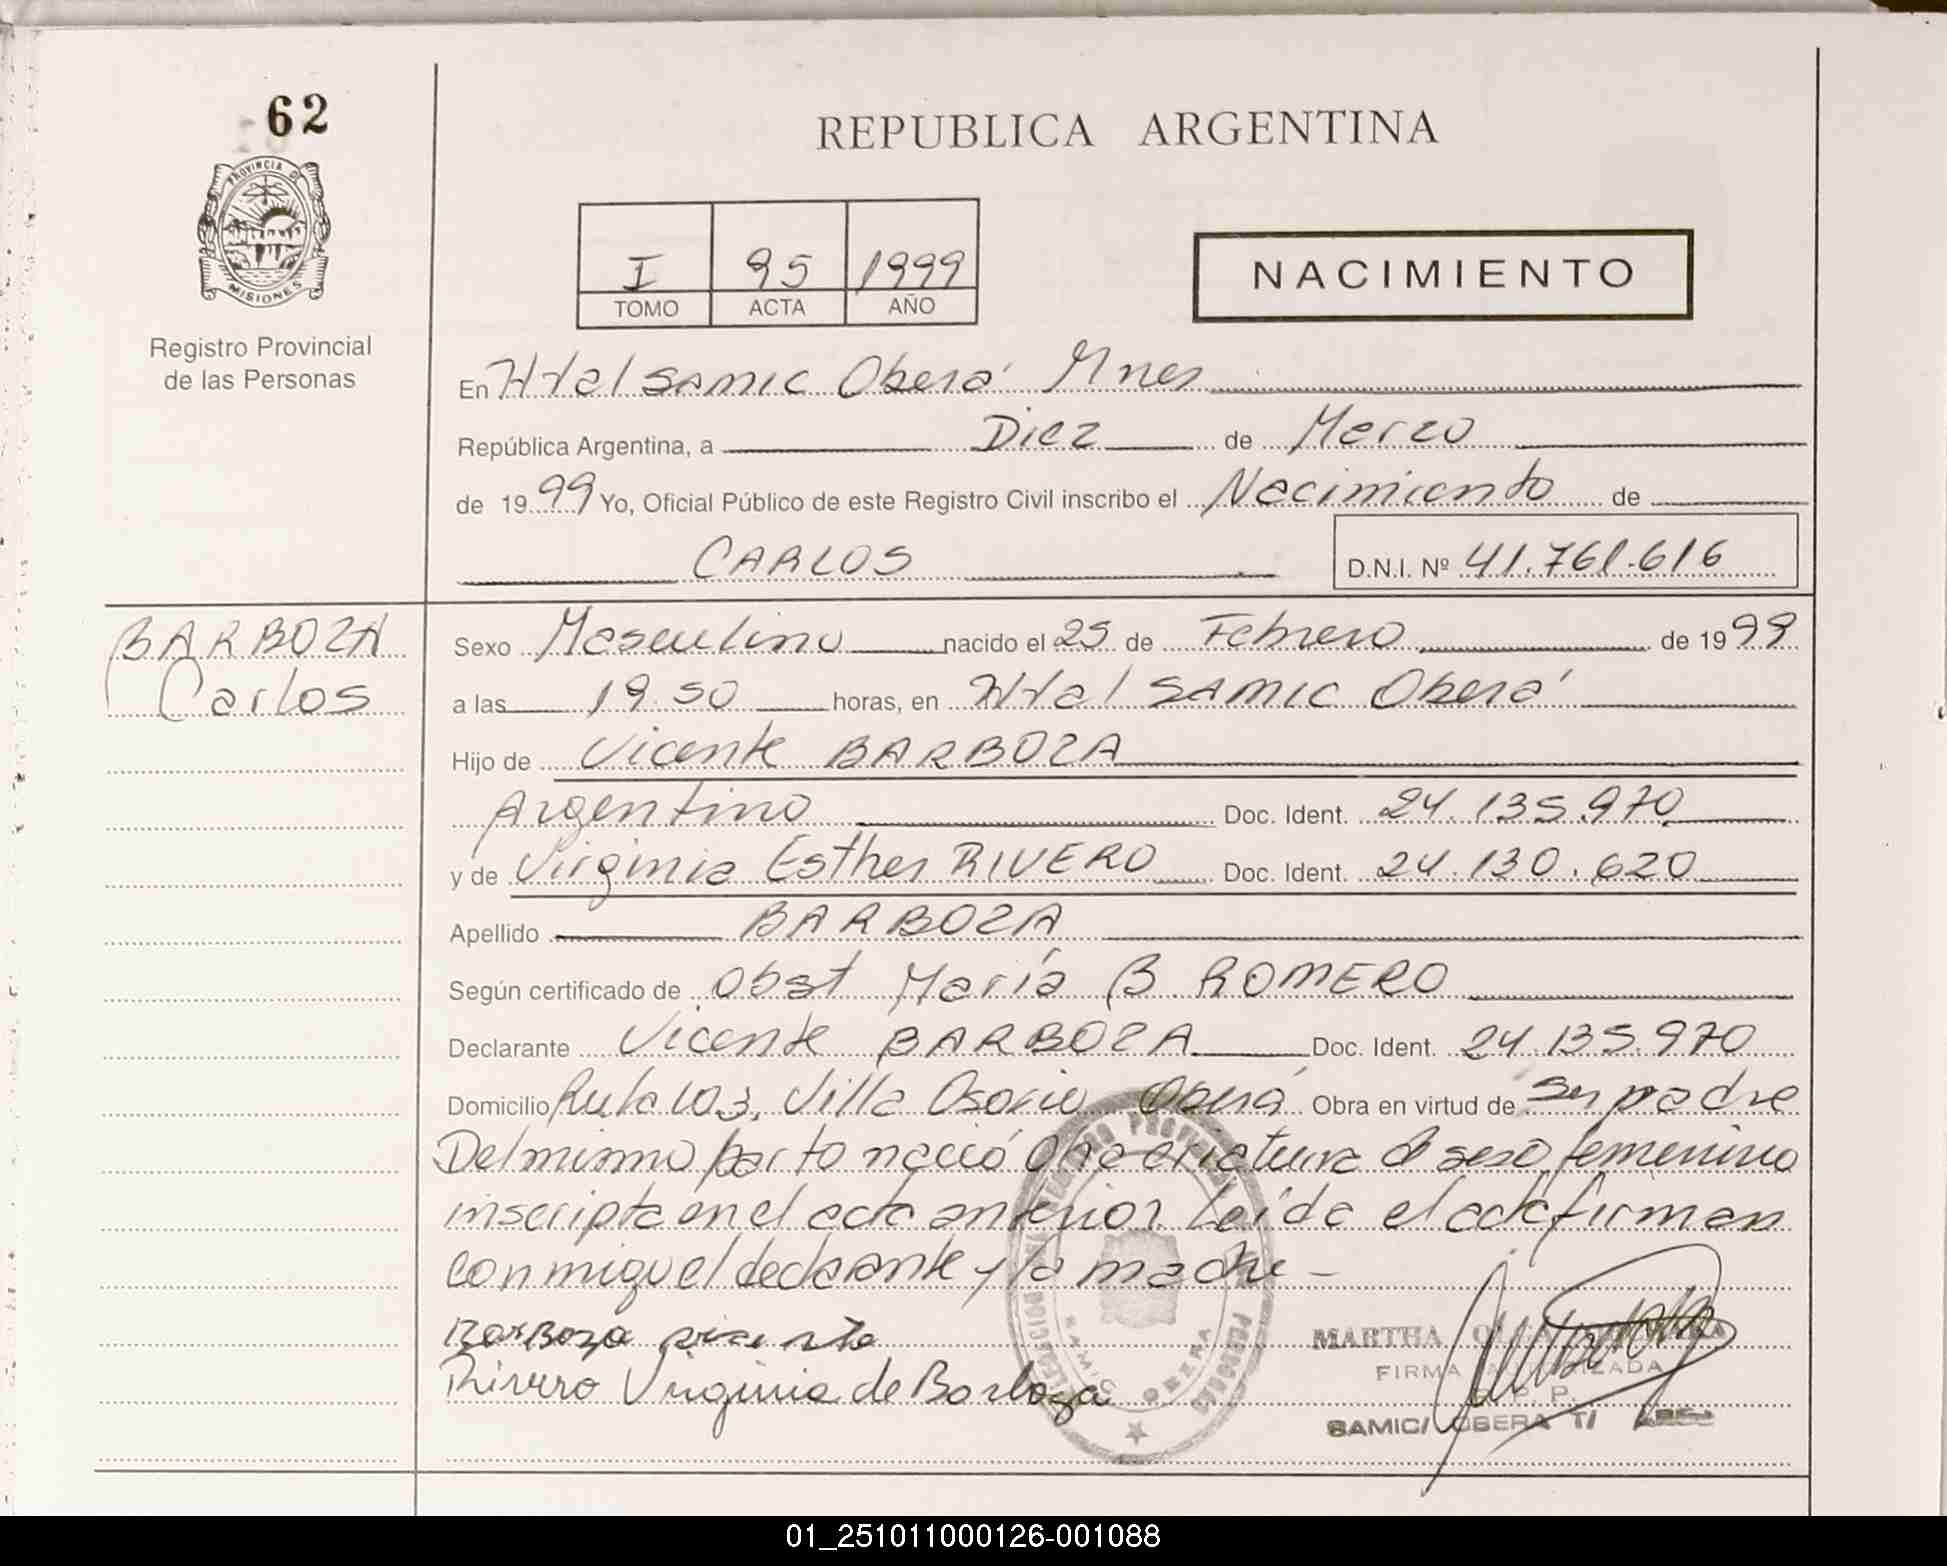 62
PROVINCIA DE
MISIONES
Registro Provincial
de las Personas
REPUBLICA ARGENTINA
I 95 1999
TOMO ACTA AÑO
NACIMIENTO
En Htal SAMIC Oberá Mnes
República Argentina, a Diez de Marzo
de 1999 Yo, Oficial Público de este Registro Civil inscribo el Nacimiento de
CARLOS D.N.I. Nº 41.761.616
BARBOZA
Carlos
Sexo Masculino nacido el 25 de Febrero de 1999
a las 19.50 horas, en Htal SAMIC Oberá
Hijo de Vicente BARBOZA
Argentino Doc. Ident. 24.135.970
y de Virginia Esther RIVERO Doc. Ident. 24.130.620
Apellido BARBOZA
Según certificado de Obst María B. ROMERO
Declarante Vicente BARBOZA Doc. Ident. 24.135.970
Domicilio Ruta 103, Villa Osorio Oberá Obra en virtud de ser padre
Del mismo parto nació otra criatura de sexo femenino
inscripta en el acta anterior Leída el acta firman
conmigo el declarante y la madre -
Barboza vicente
Rivero Virginia de Barboza
MARTHA
FIRMA AUTORIZADA
R. P. P.
SAMIC/ OBERA T/
SAMIC OBERA
01_251011000126-001088